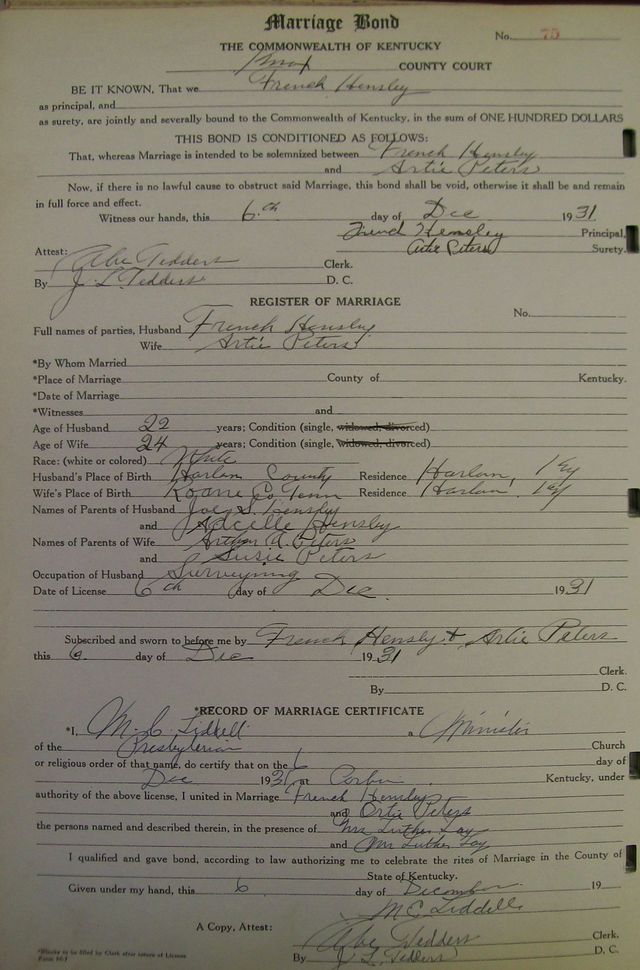 Marriage Bond
No. 75
THE COMMONWEALTH OF KENTUCKY
Knox COUNTY COURT
BE IT KNOWN, That we French Hensley
as principal, and
as surety, are jointly and severally bound to the Commonwealth of Kentucky, in the sum of ONE HUNDRED DOLLARS
THIS BOND IS CONDITIONED AS FOLLOWS:
That, whereas Marriage is intended to be solemnized between French Hensley
and Artie Peters
Now, if there is no lawful cause to obstruct said Marriage, this bond shall be void, otherwise it shall be and remain
in full force and effect.
Witness our hands, this 6th day of Dec 1931
French Hensley Principal,
Artie Peters Surety.
Attest:
Abe Tedders Clerk.
By J. L. Tedders D. C.
REGISTER OF MARRIAGE
No.
Full names of parties, Husband French Hensley
Wife Artie Peters
*By Whom Married
*Place of Marriage County of Kentucky.
*Date of Marriage
*Witnesses and
Age of Husband 22 years; Condition (single, widowed, divorced)
Age of Wife 24 years; Condition (single, widowed, divorced)
Race: (white or colored) White
Husband's Place of Birth Harlan County Residence Harlan, Ky
Wife's Place of Birth Roane Co Tenn Residence Harlan Ky
Names of Parents of Husband Joe S. Hensley
and Hensley
Names of Parents of Wife Arthur A. Peters
and Susie Peters
Occupation of Husband Surveyning
Date of License 6th day of Dec 1931
Subscribed and sworn to before me by French Hensley & Artie Peters
this 6 day of Dec 1931
Clerk.
By D. C.
*RECORD OF MARRIAGE CERTIFICATE
*I, M. C. Liddell a Minister
of the Presbyterian Church
or religious order of that name, do certify that on the 6 day of
Dec 1931 at Corbin Kentucky, under
authority of the above license, I united in Marriage French Hensley
and Ortie Peters
the persons named and described therein, in the presence of Mrs Luther Lay
and Mr Luther Lay
I qualified and gave bond, according to law authorizing me to celebrate the rites of Marriage in the County of
State of Kentucky.
Given under my hand, this 6 day of December 19
M C Liddell
A Copy, Attest:
Abe Tedders Clerk.
By J L Tedders D. C.
*Blanks to be filled by Clerk after return of License